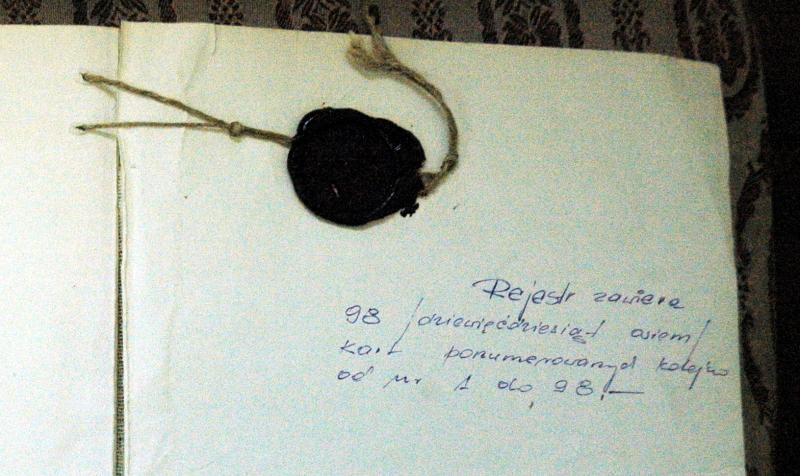 Rejestr zawiera
98 /dziewięćdziesiąt osiem/
kart ponumerowanych kolejno
od nr 1 do 98,—